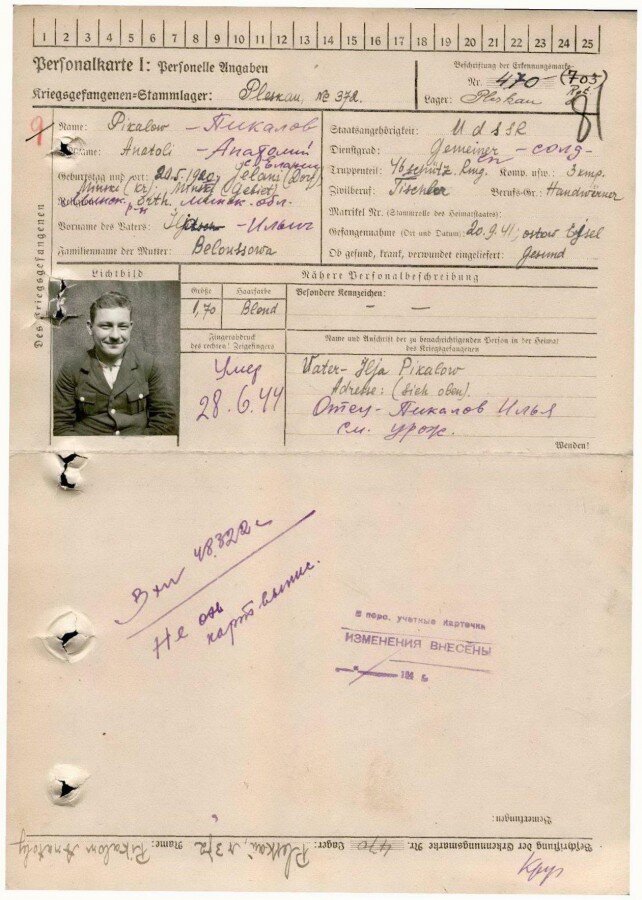 1 2 3 4 5 6 7 8 9 10 11 12 13 14 15 16 17 18 19 20 21 22 23 24 25
Personalkarte I: Personelle Angaben
Beschriftung der Erkennungsmarke
Nr. 470 (703
Kriegsgefangenen=Stammlager: Pleskau, № 372.
Lager: Pleskau
Des Kriegsgefangenen
Name: Pikalow - Пикалов
Staatsangehörigkeit: UdSSR
Anatoli - Анатолий
Dienstgrad: Gemeiner - солд-
Geburtstag und =ort: 20.5.1920, Jelani (Dorf)
Truppenteil: 46 schütz. Rng. Komp. usw.: 3 komp.
Minsk (Kr) Minsk (Gebiet)
Zivilberuf: Tischler Berufs-Gr.: Handwörner
Orth. Минск. обл.
Matrikel Nr. (Stammrolle des Heimatstaates):
Vorname des Vaters: - Ильич
Gefangennahme (Ort und Datum): 20.9.41, Ösel
Familienname der Mutter: Beloussowa
Ob gesund, krank, verwundet eingeliefert: Gesund
Lichtbild
Nähere Personalbeschreibung
Größe Haarfarbe Besondere Kennzeichen:
1,70 Blond
Fingerabdruck
des rechten! Zeigefingers
Name und Anschrift der zu benachrichtigenden Person in der Heimat
des Kriegsgefangenen
Умер
28.6.44
Vater- Ilja Pikalow
Adresse: (sieh oben).
Отец - Пикалов Илья
см. урож.
Wenden!
Вхn 48322с
Не
карт выпис.
В перс. учетные карточки
ИЗМЕНЕНИЯ ВНЕСЕНЫ
194 г.
Bemerkungen:
Beschriftung der Erkennungsmarke Nr. 470 Lager: Pleskau, № 372 Name: Pikalow Anatoly